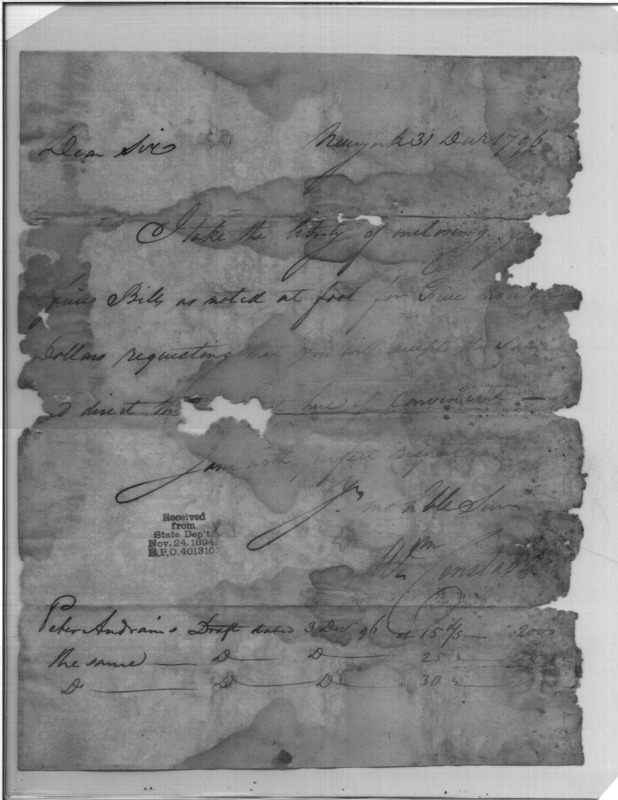 Newyork 31 Decr 1796
Dear Sir
I take the liberty of inclosing
Bills as noted at foot for
Dollars requesting that you will accept the
direct here if Convenient —
I am with perfect Respect
Yr mo h'ble Sert
Wm Constable
Received
from
State Dep't.
Nov. 24. 1894.
R.P.O. 401310.
Peter Audrains Draft dated 3 Decr 96 at 15 d/s — 2000
the same — Do — Do — 25 "
Do — Do — Do — 30 "